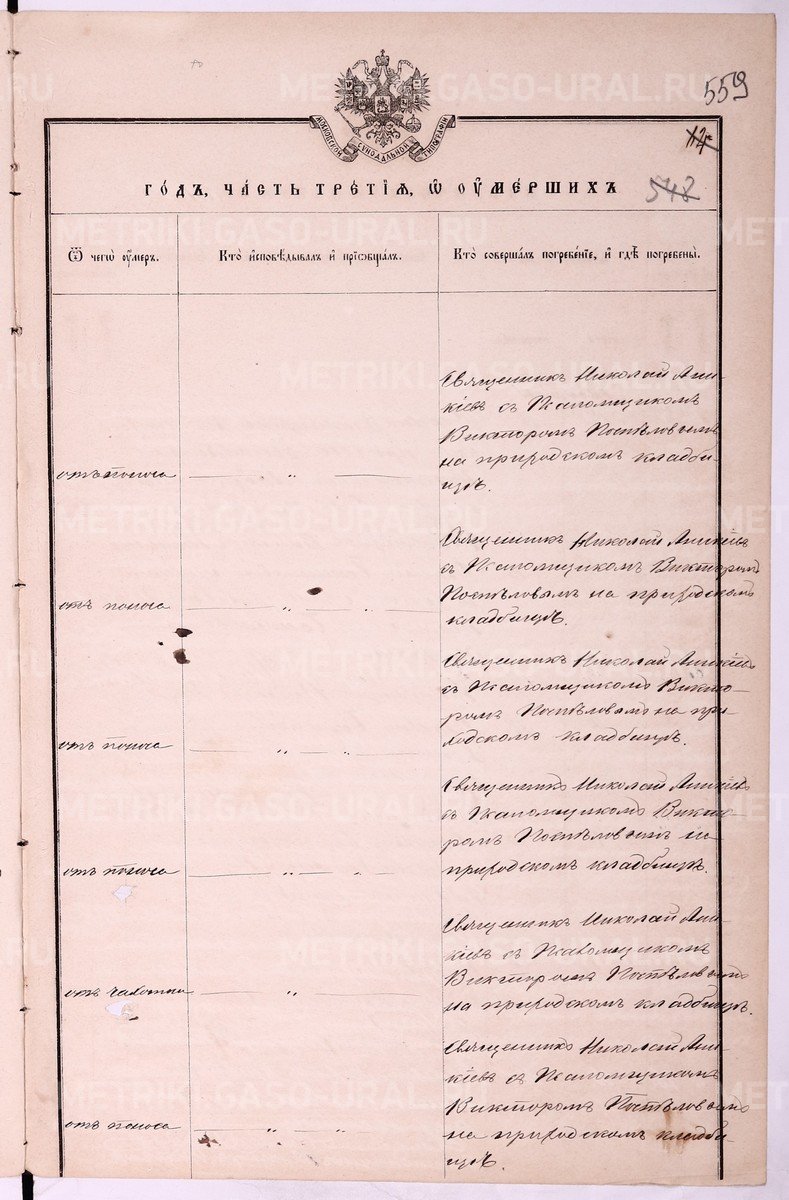 559
МОСКОВСКОЙ СѴНОДАЛЬНОЙ ТИПОГРАФІИ
12
548
ГО́ДЪ, ЧА́СТЬ ТРЕ́ТІѦ, Ѿ ОУМЕ́РШИХЪ
Ѿ чегѡ̀ оу҆́меръ.
Кто̀ и҆сповѣ́дывалъ и҆ прїѡбща́лъ.
Кто̀ соверша́лъ погребе́нїе, и҆ гдѣ̀ погребены̀.
Священникъ Николай Ани-
кіевъ съ Псаломщикомъ
Викторомъ Поспѣловымъ
на приходскомъ кладби-
щѣ.
отъ поноса — „ —
Священникъ Николай Аникіевъ
съ Псаломщикомъ Викторомъ
Поспѣловымъ на приходскомъ
кладбищѣ.
отъ поноса — „ — „ —
Священникъ Николай Аникіевъ
съ Псаломщикомъ Викто-
ромъ Поспѣловымъ на при-
ходскомъ кладбищѣ.
отъ поноса — „ — „ —
Священникъ Николай Аникіевъ
съ Псаломщикомъ Викто-
ромъ Поспѣловымъ на
приходскомъ кладбищѣ.
отъ поноса — „ — „ —
Священникъ Николай Ани-
кіевъ съ Псаломщикомъ
Викторомъ Поспѣловымъ
на приходскомъ кладбищѣ.
отъ чахотки — „ —
Священникъ Николай Ани-
кіевъ съ Псаломщикомъ
Викторомъ Поспѣловымъ
на приходскомъ кладби-
щѣ.
отъ поноса — „ — „ —
METRIKI.GASO-URAL.RU